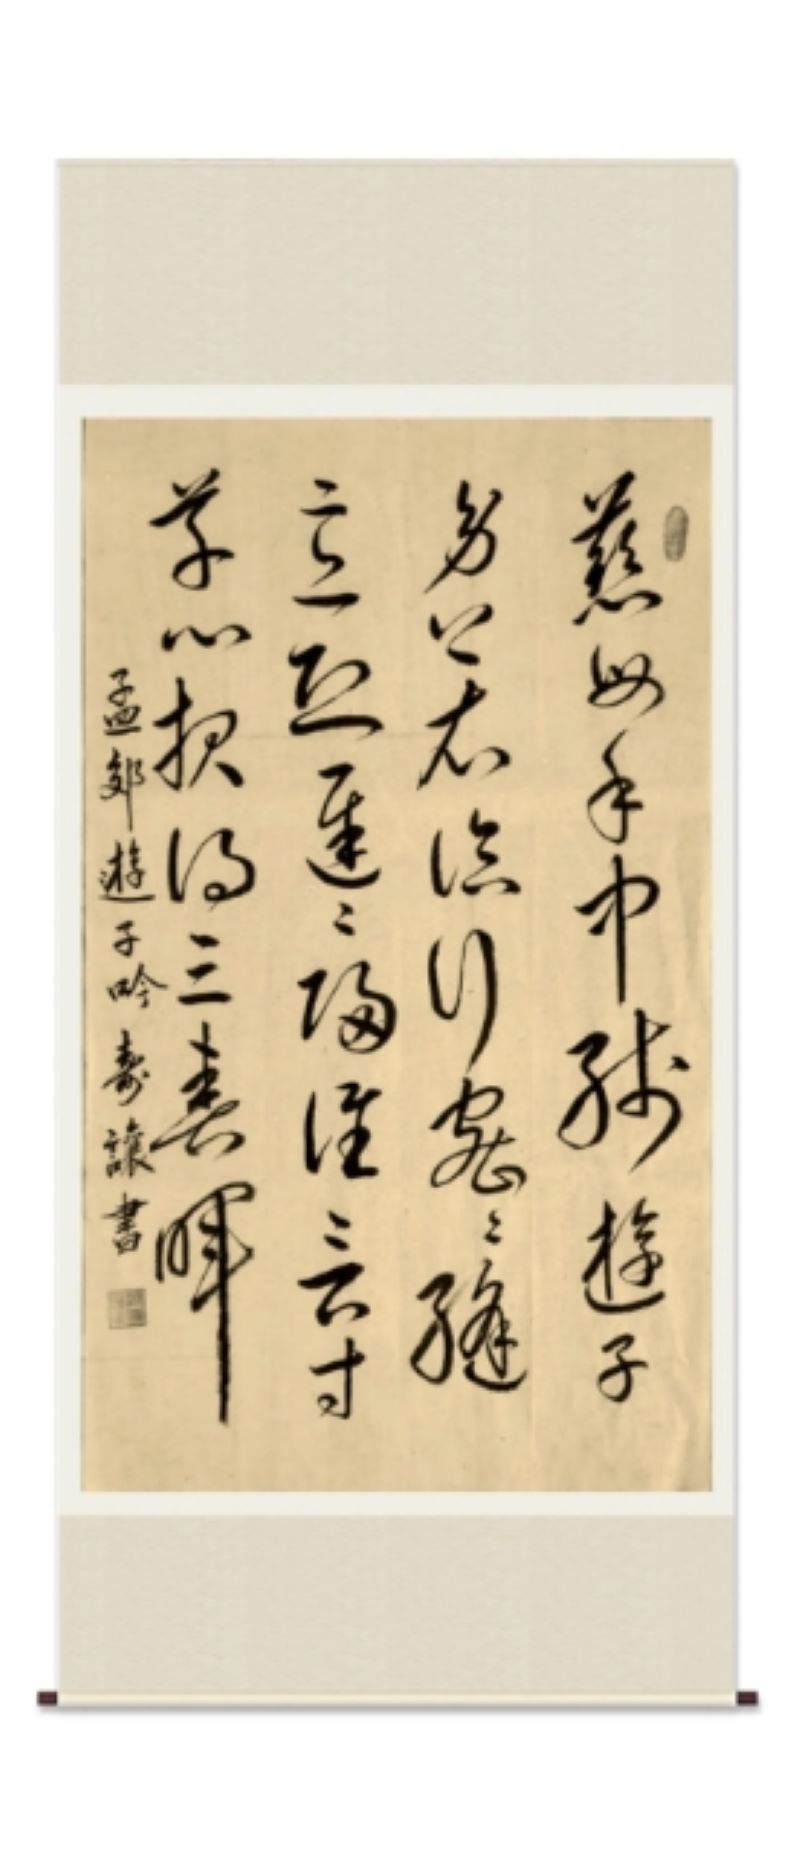 慈母手中綫遊子
身上衣臨行密〻縫
意恐遲〻歸誰言寸
草心報得三春暉
孟郊遊子吟 壽讓書